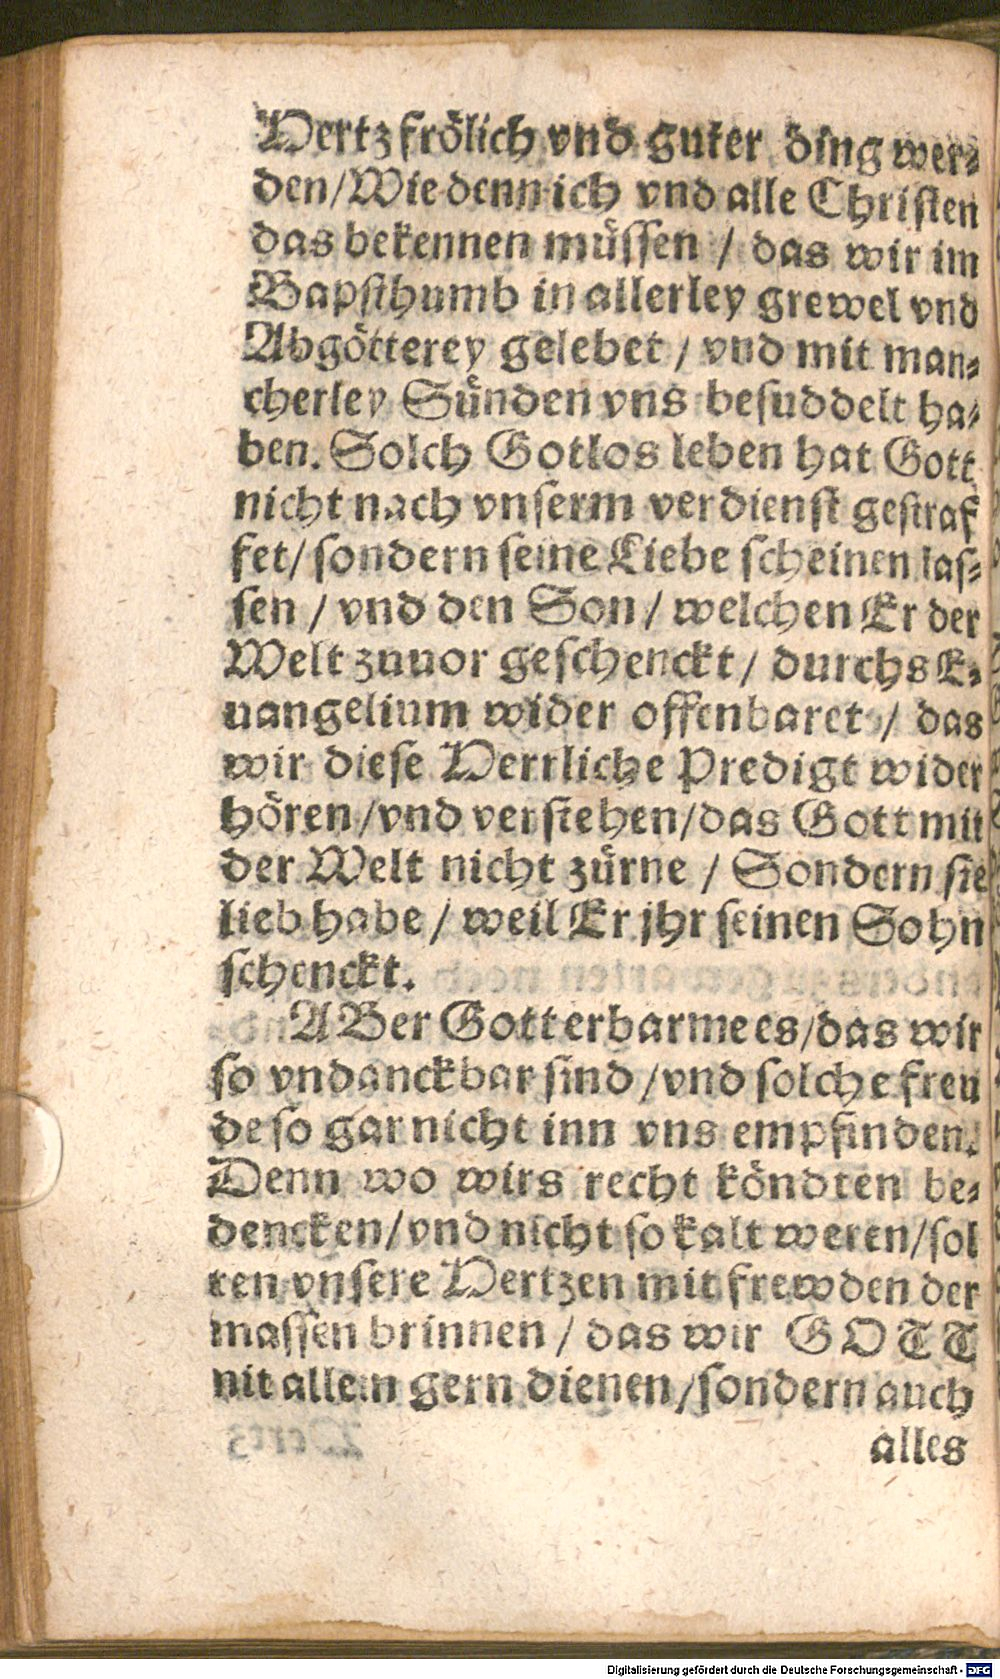 Hertz frölich vnd guter ding wer⸗
den/Wie denn ich vnd alle Christen
das bekennen müssen / das wir im
Bapsthumb in allerley grewel vnd
Abgötterey gelebet / vnd mit man⸗
cherley Sünden vns besuddelt ha⸗
ben. Solch Gotlos leben hat Gott
nicht nach vnserm verdienst gestraf
fet/ sondern seine Liebe scheinen las⸗
sen / vnd den Son / welchen Er der
Welt zuuor geschenckt / durchs E⸗
uangelium wider offenbaret / das
wir diese Herrliche Predigt wider
hören /vnd verstehen/das Gott mit
der Welt nicht zürne / Sondern sie
lieb habe / weil Er jhr seinen Sohn
schenckt.
ABer Gott erbarme es/das wir
so vndanckbar sind /vnd solche freu
de so gar nicht inn vns empfinden.
Denn wo wirs recht köndten be⸗
dencken/vnd nicht so kalt weren/sol
ten vnsere Hertzen mit frewden der
massen brinnen / das wir GOTT
nit allein gern dienen/sondern auch
alles
Digitalisierung gefördert durch die Deutsche Forschungsgemeinschaft - DFG